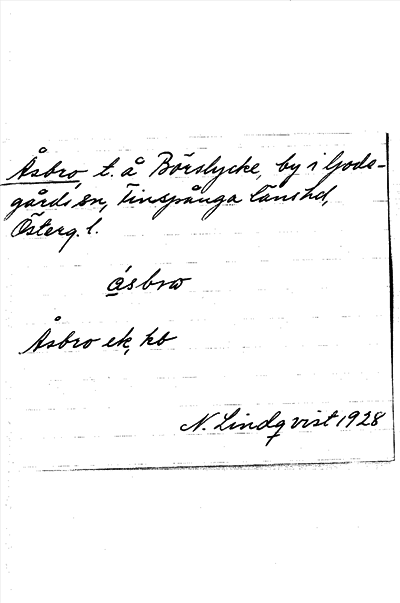 Åsbro, t. å Börslycke, by i Gods-
gårds sn, Finspånga läns hd,
Österg. l.
ásbrω
Åsbro ek, kb
N. Lindqvist 1928